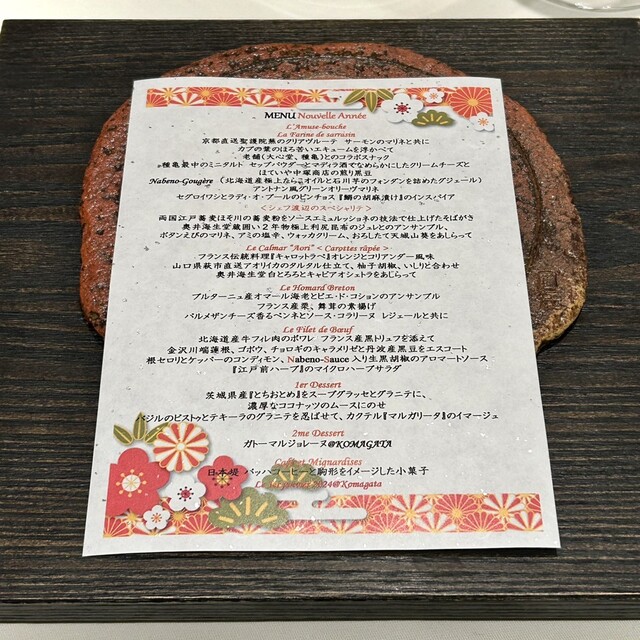 MENU Nouvelle Année
L'Amuse-bouche
La Farine de sarrasin
京都直送聖護院蕪のクリアヴルーテ サーモンのマリネと共に
カブの葉のほろ苦いエキュームを浮かべて
老舗(大心堂、種亀)とのコラボスナック
種亀最中のミニタルト セップパウダーとマディラ酒でなめらかにしたクリームチーズと
ほていや中塚商店の煎り黒豆
Nabeno-Gougère (北海道産極上ならオイルと石川芋のフォンダンを詰めたグジェール)
アントナン風グリーンオリーヴマリネ
セグロイワシとラディ・オ・ブールのピンチョス『鯛の胡麻漬け』のインスパイア
<シェフ渡辺のスペシャリテ>
両国江戸蕎麦ほそ川の蕎麦粉をソースエミュルッショネの技法で仕上げたそばがき
奥井海生堂蔵囲い2年物極上利尻昆布のジュレとのアンサンブル、
ボタンえびのマリネ、アミの塩辛、ウォッカクリーム、おろしたて天城山葵をあしらって
Le Calmar "Aori" < Carottes râpée >
フランス伝統料理『キャロットラペ』オレンジとコリアンダー風味
山口県萩市直送アオリイカのタルタル仕立て、柚子胡椒、いしりと合わせ
奥井海生堂白とろろとキャビアオシェトラをあしらって
Le Homard Breton
ブルターニュ産オマール海老とピエ・ド・コションのアンサンブル
フランス産栗、舞茸の素揚げ
パルメザンチーズ香るベンネとソース・コラリーヌ レジュールと共に
Le Filet de Bœuf
北海道産牛フィレ肉のポワレ フランス産黒トリュフを添えて
金沢川端蓮根、ゴボウ、チョロギのキャラメリゼと丹波産黒豆をエスコート
根セロリとケッパーのコンディモン、Nabeno-Sauce 入り生黒胡椒のアロマートソース
『江戸前ハーブ』のマイクロハーブサラダ
1er Dessert
茨城県産『とちおとめ』をスープグラッセとグラニテに、
濃厚なココナッツのムースにのせ
バジルのピストゥとテキーラのグラニテを忍ばせて、カクテル『マルガリータ』のイマージュ
2me Dessert
ガトーマルジョレーヌ@KOMAGATA
Café et Mignardises
日本堤 バッハコーヒーと駒形をイメージした小菓子
2024@Komagata